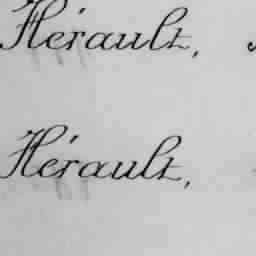 Hérault,
Hérault,